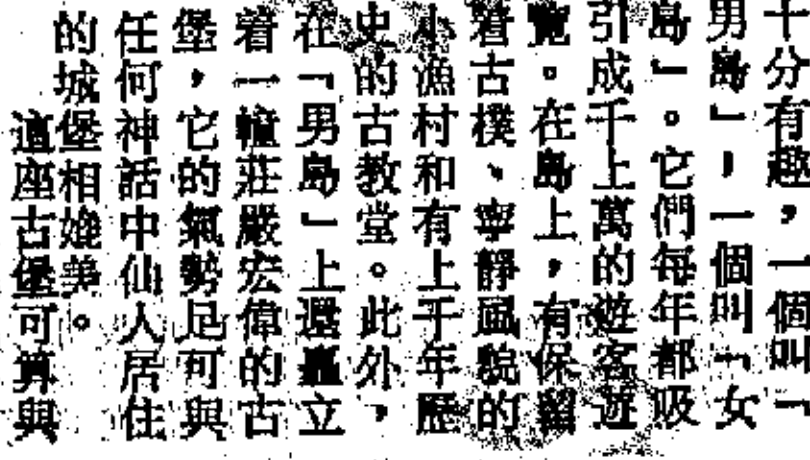 十分有趣，一個叫「
男島」，一個叫「女
島」。它們每年都吸
引成千上萬的遊客遊
覽。在島上，有保留
着古樸、寧靜風貌的
小漁村和有上千年歷
史的古教堂。此外，
在「男島」上還矗立
着一幢莊嚴宏偉的古
堡，它的氣勢足可與
任何神話中仙人居住
的城堡相媲美。
這座古堡可算與